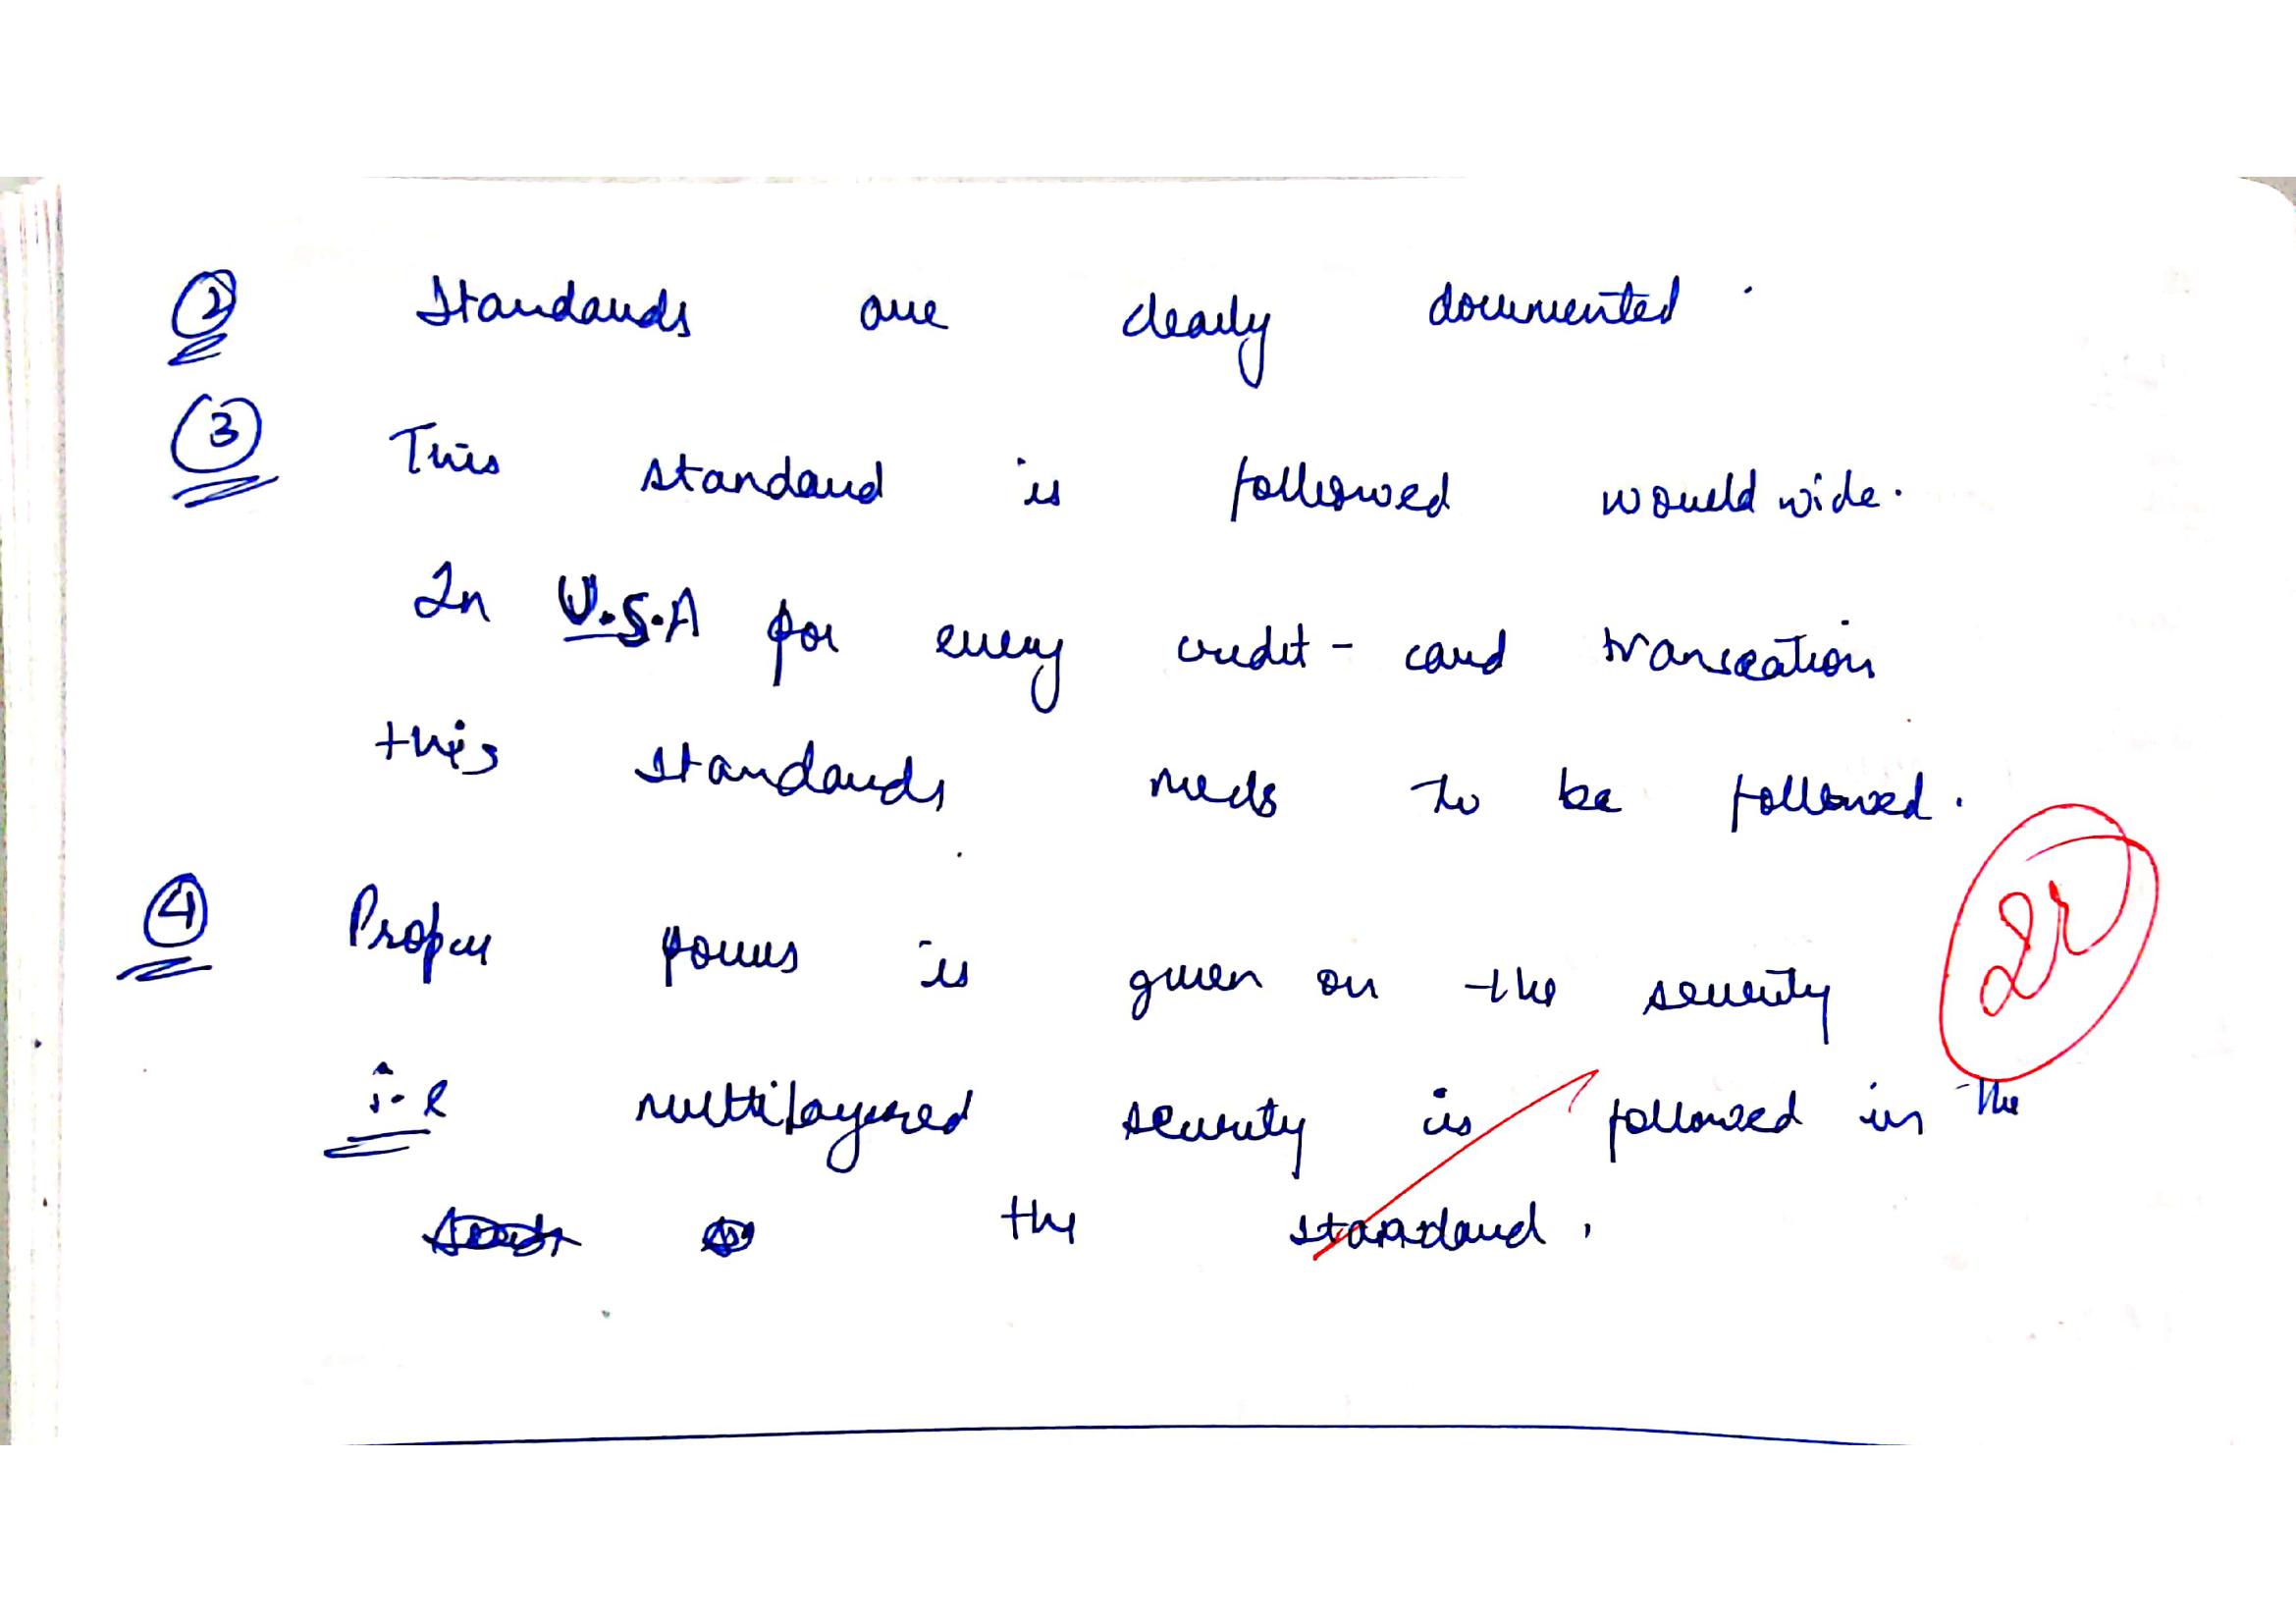 ② Standards are clearly documented.
③ This standard is followed world wide.
In U.S.A for every credit - card transcation
this standards needs to be followed.
④ Proper focus is given on the security
i.e multilayered security is followed in the
the standard.